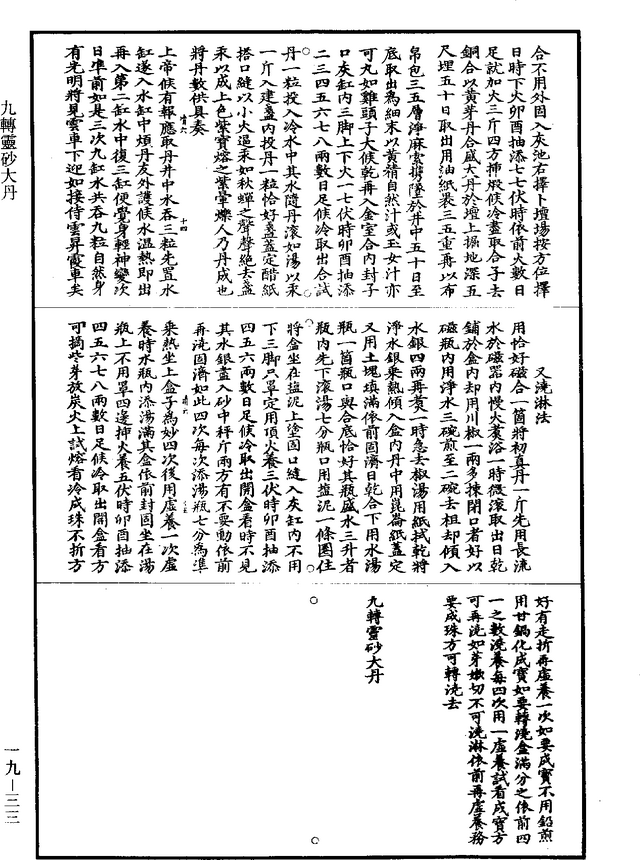 合不用外固入灰池右擇卜壇場按方位擇
日時下火卯酉抽添七七伏時依前火數日
足就加火三斤四方揷煅候冷盡取合子去
銅合以黄芽丹合盛大丹於壇上掘地深五
尺埋五十日取出用油紙裝三五重再以布
帛包三五層淨麻索縛墜於井中五十日至
底取出為細末以黄精自然汁或玉女汁亦
可丸如雞頭子大候乾再入金室合內封子
口灰缸內三脚上下火一七伏時卯酉抽添
二三四五六七八兩數日足候冷取出合試
丹一粒投入冷水中其水隨丹滚如湯以汞
一斤入建盞內投丹一粒恰好盞蓋定醋紙
搭口縫以小火逼汞如秋蟬之聲聲絶去盞
汞以成上色紫寶熔之紫暈爍人乃丹成也
將丹數供具奏
上帝候有報應取丹井中水吞三粒先置水
缸遂入水缸中煩丹友外護候水温熱即出
再入第二缸水中復三缸便覺身輕神變次
日凖前如是三次九缸水共吞九粒自然身
有光明將見雲車下迎如接侍雲昇霞車矣
又澆淋法
用恰好磁合一箇將初真丹一斤先用長流
水於磁器內慢火煑浴一時微滚取出日乾
鋪於盒內却用川椒一兩多揀閉口者好以
磁瓶內用淨水三碗煎至二碗去粗却傾入
水銀四兩再煑一時急去椒湯用紙拭乾將
淨水銀乘熱傾入盒內丹中用崑崙紙蓋定
又用土塊填滿依前固濟日乾合下用水湯
瓶一箇瓶口與合底恰好其瓶盛水三升者
瓶內先下滚湯七分瓶口用塩泥一條圈住
將盒坐在塩泥上塗固口縫入灰缸內不用
下三脚只罩定用頂火養三伏時卯酉抽添
四五六兩數日足候冷取出開盒看時不見
其水銀盡入砂中秤斤兩方有不要動依前
再澆固濟如此四次每次添湯瓶七分為凖
乘熱坐上盒子為妙四次後用虛養一次虛
養時水瓶內添湯滿其盒依前封固坐在湯
瓶上不用罩四邊揷火養五伏時卯酉抽添
四五六七八兩數日足候冷取出開盒看方
可摘些芽放炭火上試熔看冷成珠不折方
好有走折再虛養一次如要成寶不用鉛煎
用甘鍋化成寶如要轉澆盒滿分之依前四
一之數澆養每四次用一虛養試看成寶方
可再澆如芽嫩切不可澆淋依前再虛養務
要成珠方可轉澆去
九轉靈砂大丹
九轉靈砂大丹
一九—三三